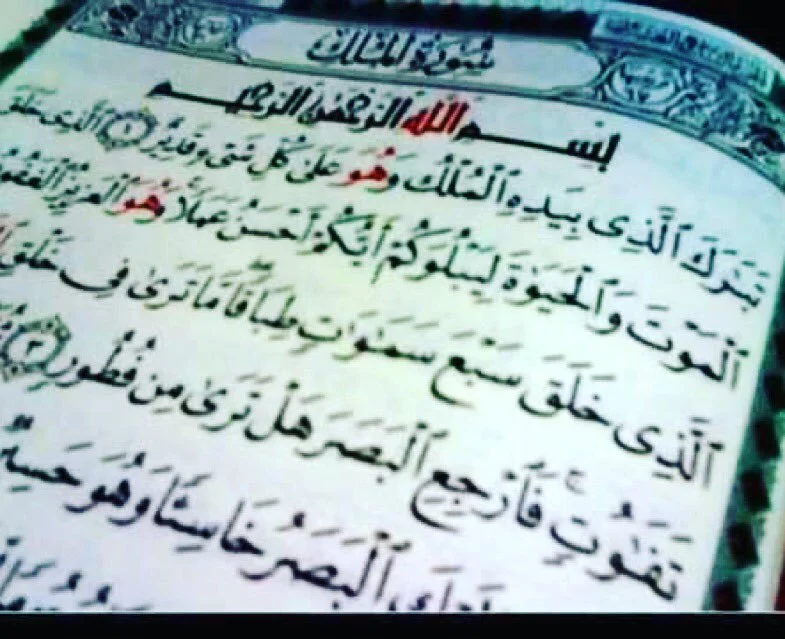 سُورَةُ المُلْكِ
بِسْمِ اللَّهِ الرَّحْمَٰنِ الرَّحِيمِ
تَبَٰرَكَ ٱلَّذِى بِيَدِهِ ٱلْمُلْكُ وَهُوَ عَلَىٰ كُلِّ شَىْءٍ قَدِيرٌ ١ ٱلَّذِى خَلَقَ
ٱلْمَوْتَ وَٱلْحَيَوٰةَ لِيَبْلُوَكُمْ أَيُّكُمْ أَحْسَنُ عَمَلًا وَهُوَ ٱلْعَزِيزُ
ٱلَّذِى خَلَقَ سَبْعَ سَمَٰوَٰتٍ طِبَاقًا مَّا تَرَىٰ فِى خَلْقِ
تَفَٰوُتٍ فَٱرْجِعِ ٱلْبَصَرَ هَلْ تَرَىٰ مِن فُطُورٍ ٣
ٱلْبَصَرُ خَاسِئًا وَهُوَ